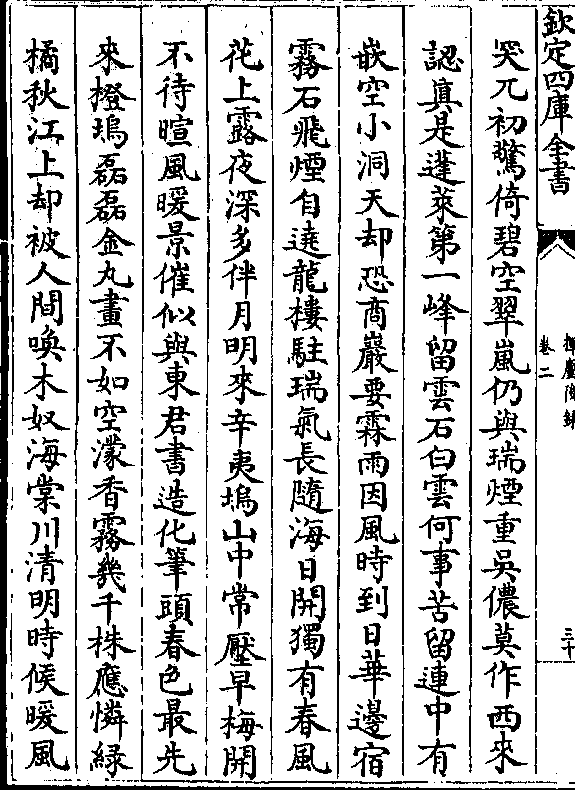 欽定四庫全書
揮麈後錄
卷二
三十
突兀初驚倚碧空翠嵐仍與瑞煙重吳儂莫作西來
認真是蓬萊第一峰留雲石白雲何事苦留連中有
嵌空小洞天却恐商巖要霖雨因風時到日華邊宿
霧石飛煙自遶龍樓駐瑞氣長隨海日開獨有春風
花上露夜深多伴月明來辛夷塢山中常壓早梅開
不待暄風暖景催似與東君書造化筆頭春色最先
來橙塢磊磊金丸畫不如空濛香霧幾千株應憐綠
橘秋江上却被人間喚木奴海棠川清明時候暖風